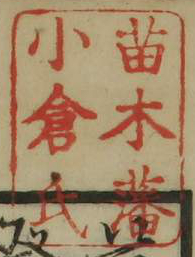 苗木藩
小倉氏